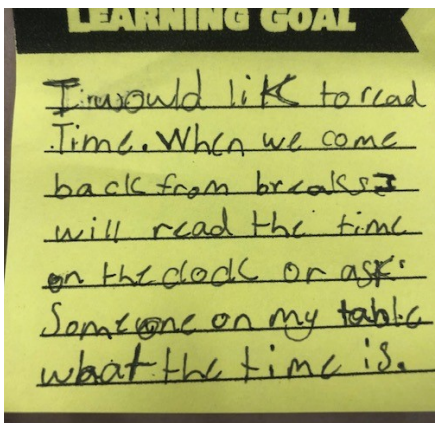 LEARNING GOAL
I would lik to read
Time. When we come
back from breaks I
will read the time
on the clock or ask
Someone on my table
what the time is.